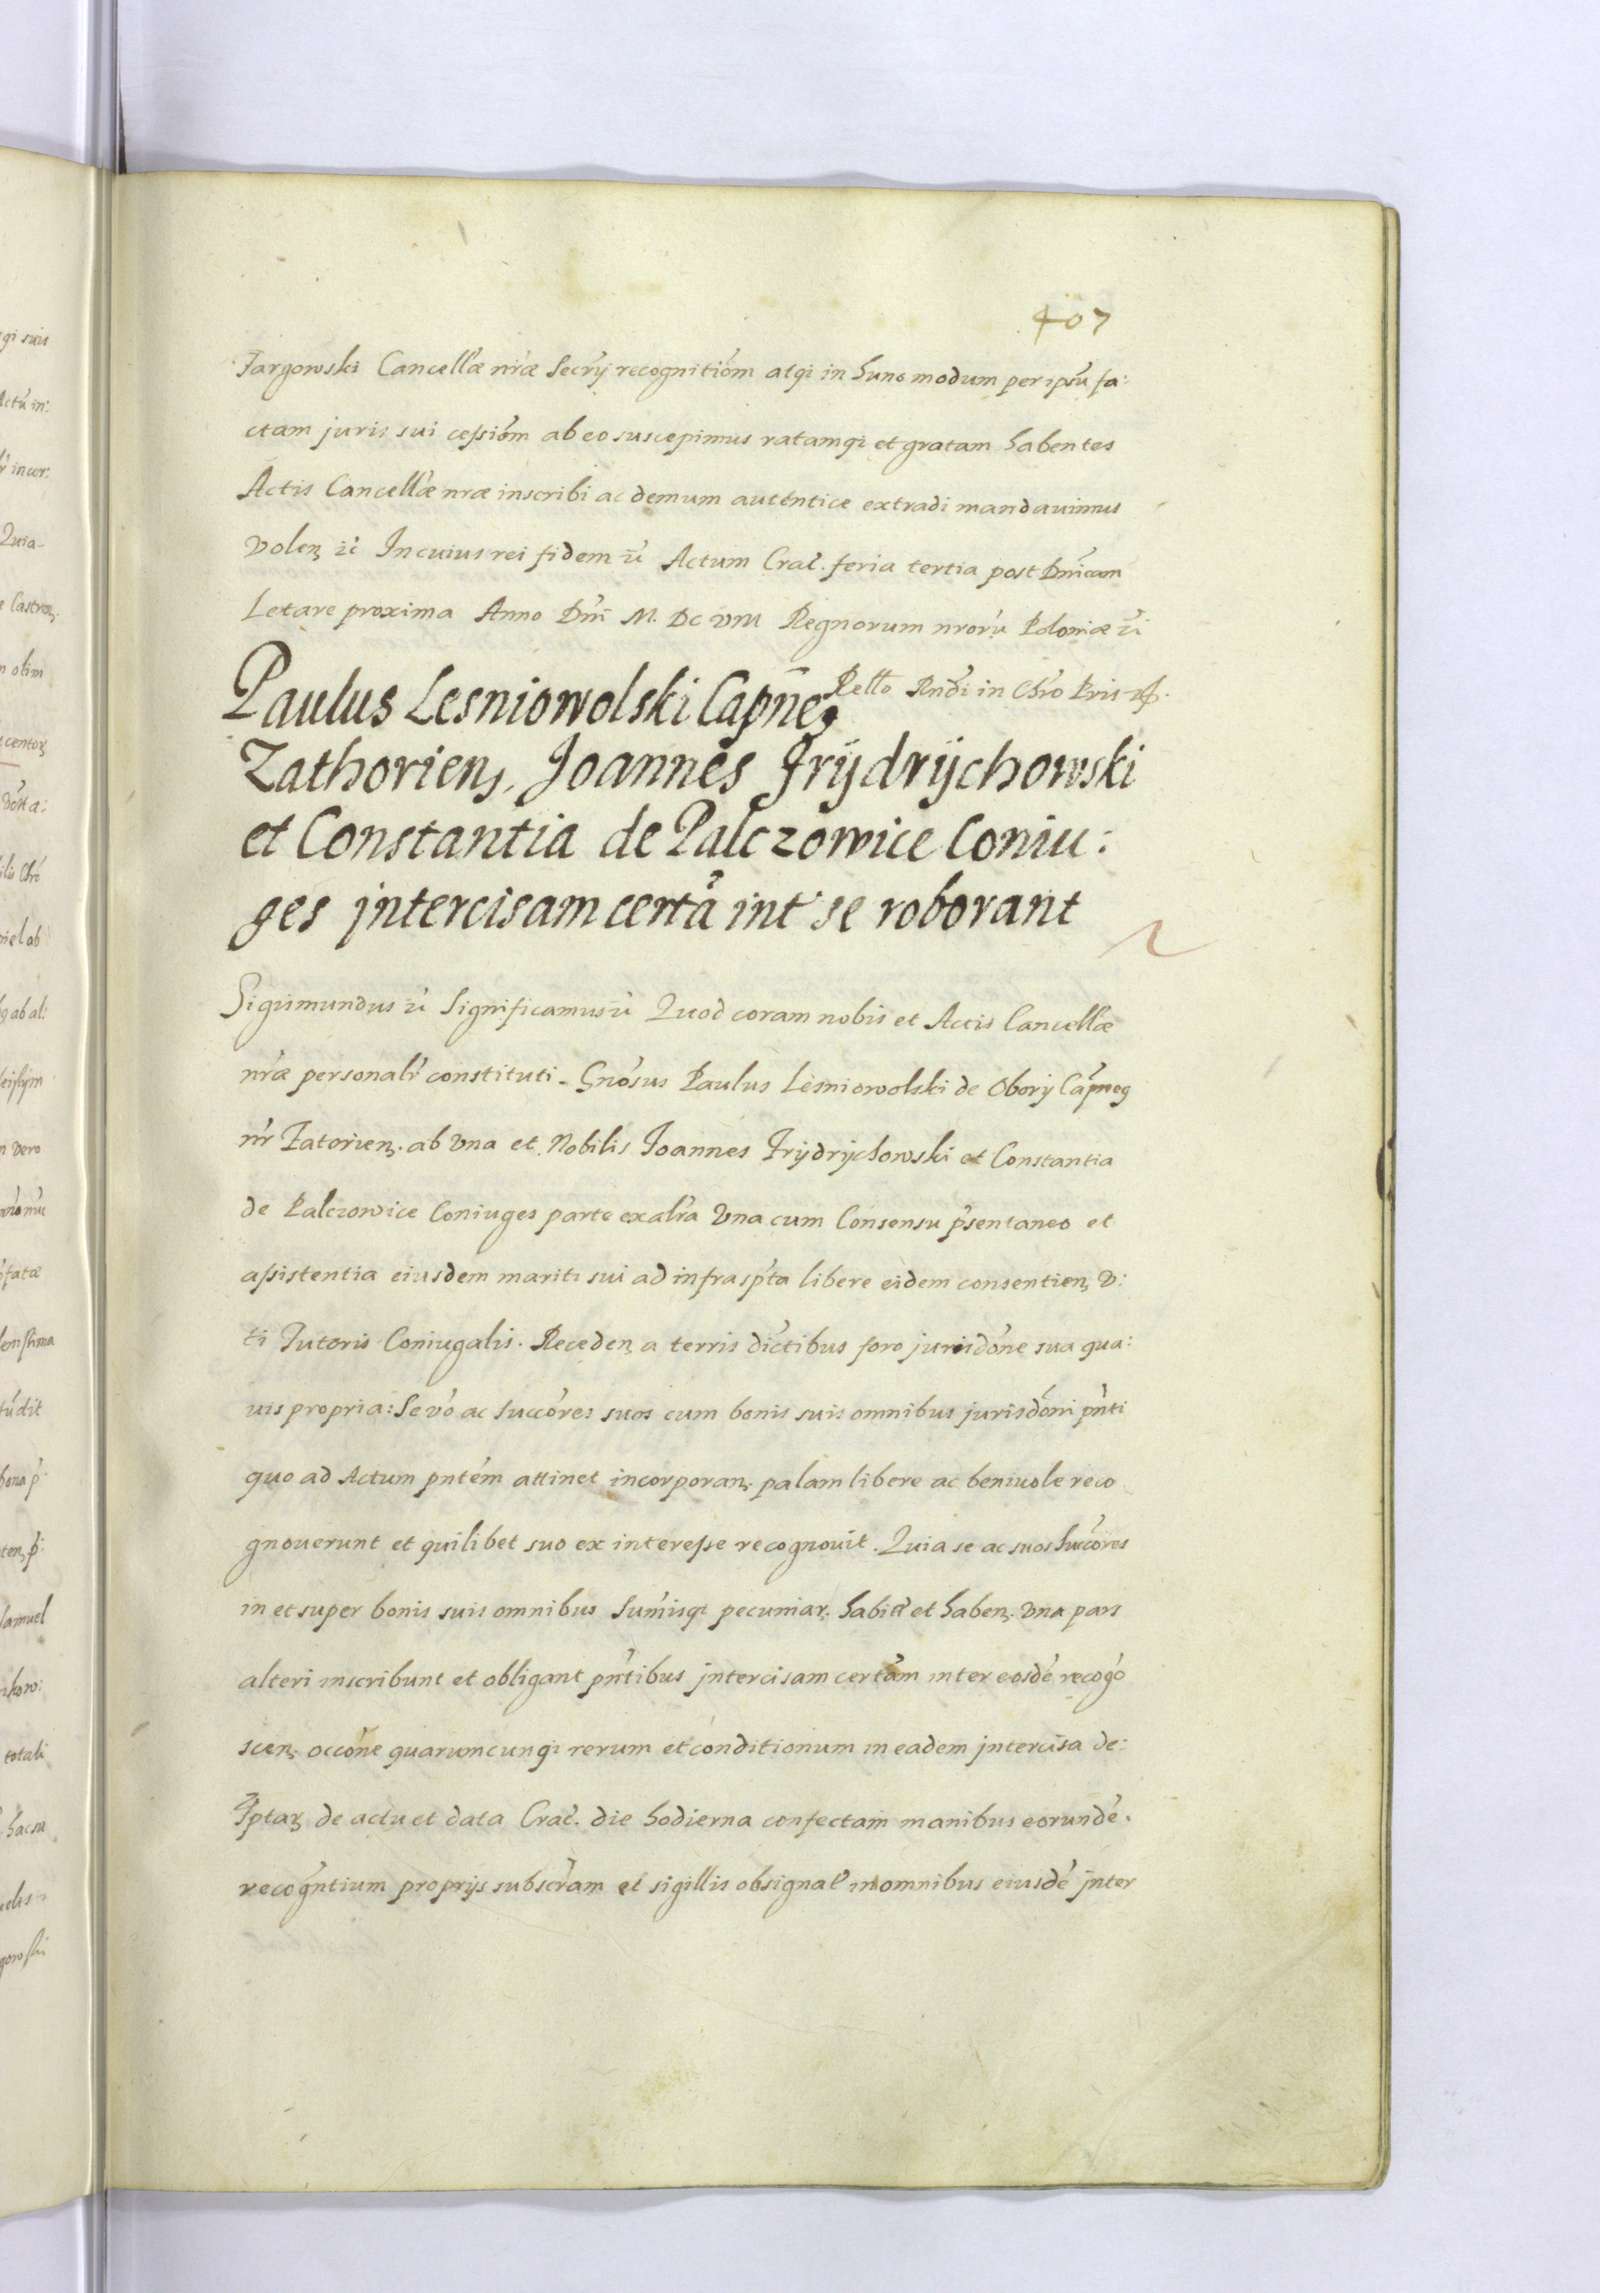 407
Targowski Cancellæ nræ Secrȳ recognitiōm atqȝ in hunc modum per ipsū fa:
ctam juris sui cessiōm ab eo suscepimus ratamqȝ et gratam habentes
Actis Cancellæ nræ inscribi ac demum autentice extradi mandavimus
Volenȝ ꝛc̄ In cuius rei fidem ꝛc̄ Actum Crac̄. feria tertia post Dnīcam
Letare proxima Anno Dnī M. DC VIII Regnorum nrorū Poloniæ ꝛc̄
Rell̄o Rndī in Chrō Pris ꝛc̄.
Paulus Lesniowolski Capneꝰ
Zathorienȝ, Joannes Frÿdrÿchowski
et Constantia de Palczowice Coniu:
ges jntercisam certā int' se roborant
Sigismundus ꝛc̄ Significamus ꝛc̄ Quod coram nobis et Actis Cancellæ
nræ personalr̄ constituti. Gnōsus Paulus Lesniowolski de Oborÿ Capneꝰ
nr̄ Zatorienȝ. ab vna et Nobilis Joannes Frÿdrÿchowski et Constantia
de Palczowice Coniuges parte ex alr̄a vna cum Consensu p̄sentaneo et
assistentia eiusdem mariti sui ad infrasp̄ta libere eidem consentienȝ v:
ti Tutoris Coniugalis. Recedenȝ a terris dictibus foro jurisdōne sua qua:
uis propria: Se vō ac Succōres suos cum bonis suis omnibus jurisdōni pn̄ti
quo ad Actum pntēm attinet incorporanȝ. palam libere ac beniuole reco
gnouerunt et quilibet suo ex interesse recognouit. Quia se ac suos Succōres
in et super bonis suis omnibus Sum̄isqȝ pecuniar. habit̄ et habenȝ. vna pars
alteri inscribunt et obligant pn̄tibus jntercisam certam inter eosdē recogō
scenȝ. occōne quarumcunqȝ rerum et conditionum in eadem jntercisa de:
sptaȝ de actu et data Crac̄. die hodierna confectam manibus eorundē.
recogn̄tium proprijs subscr̄am et sigillis obsignat̄ in omnibus eiusdē jnter